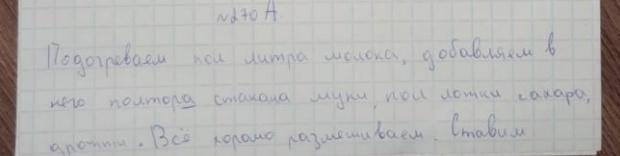 №270 А.
Подогреваем пол литра молока, добавляем в
него полтора стакана муки, пол ложки сахара,
дрожжи. Всё хорошо размешиваем. Ставим